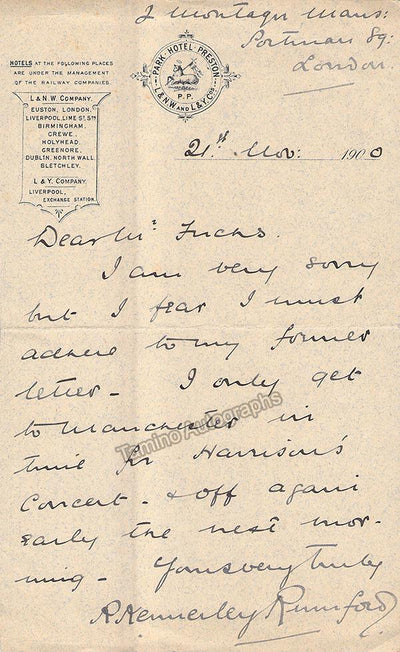 2 Montagu Mans:
Portman Sq:
London.
HOTELS AT THE FOLLOWING PLACES
ARE UNDER THE MANAGEMENT
OF THE RAILWAY COMPANIES.
L & N.W COMPANY.
EUSTON, LONDON.
LIVERPOOL, LIME ST. STN
BIRMINGHAM,
CREWE,
HOLYHEAD,
GREENORE,
DUBLIN, NORTH WALL,
BLETCHLEY.
L & Y. COMPANY.
LIVERPOOL,
EXCHANGE STATION.
PARK HOTEL PRESTON
P.P.
L&N.W. AND L&Y. COS
21st Nov: 1900
Dear Mr Fuchs.
I am very sorry
but I fear I must
adhere to my former
letter - I only get
to Manchester in
time for Harrison's
Concert - & off again
early the next mor-
ning - Yours very truly
R Kennerley Rumford
Tamino Autographs